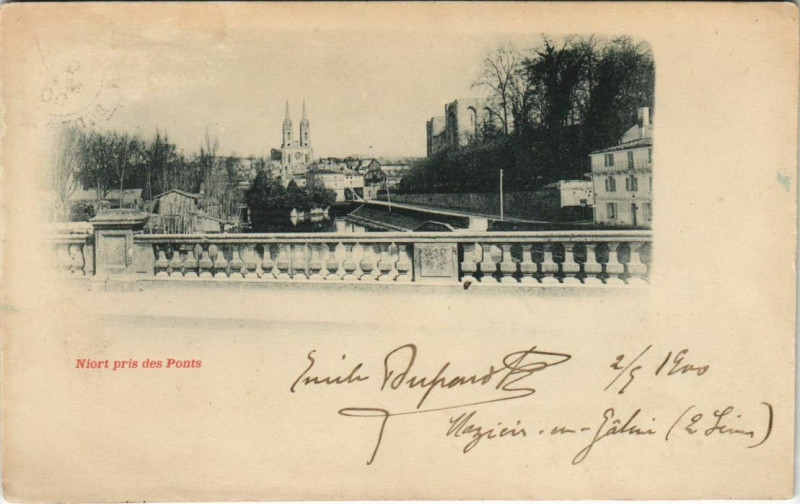 Niort pris des Ponts
Emile Dupond 2/5 1900
Mazières-en-Gâtine (2 Sèvres)